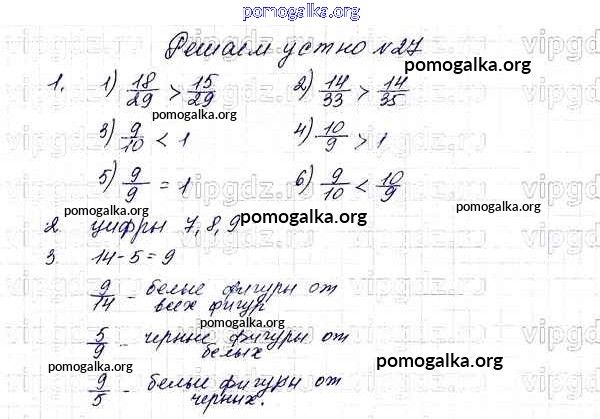 pomogalka.org
Решаем устно №27
pomogalka.org
1. 1) 18/29 > 15/29 2) 14/33 > 14/35
pomogalka.org
3) 9/10 < 1 4) 10/9 > 1
pomogalka.org
5) 9/9 = 1 6) 9/10 < 10/9
pomogalka.org pomogalka.org pomogalka.org
2 цифры 7, 8, 9
3. 14 - 5 = 9
9/14 - белые фигуры от
всех фигур
pomogalka.org
5/9 - черные фигуры от
белых
pomogalka.org
9/5 - белые фигуры от
черных.
pomogalka.org